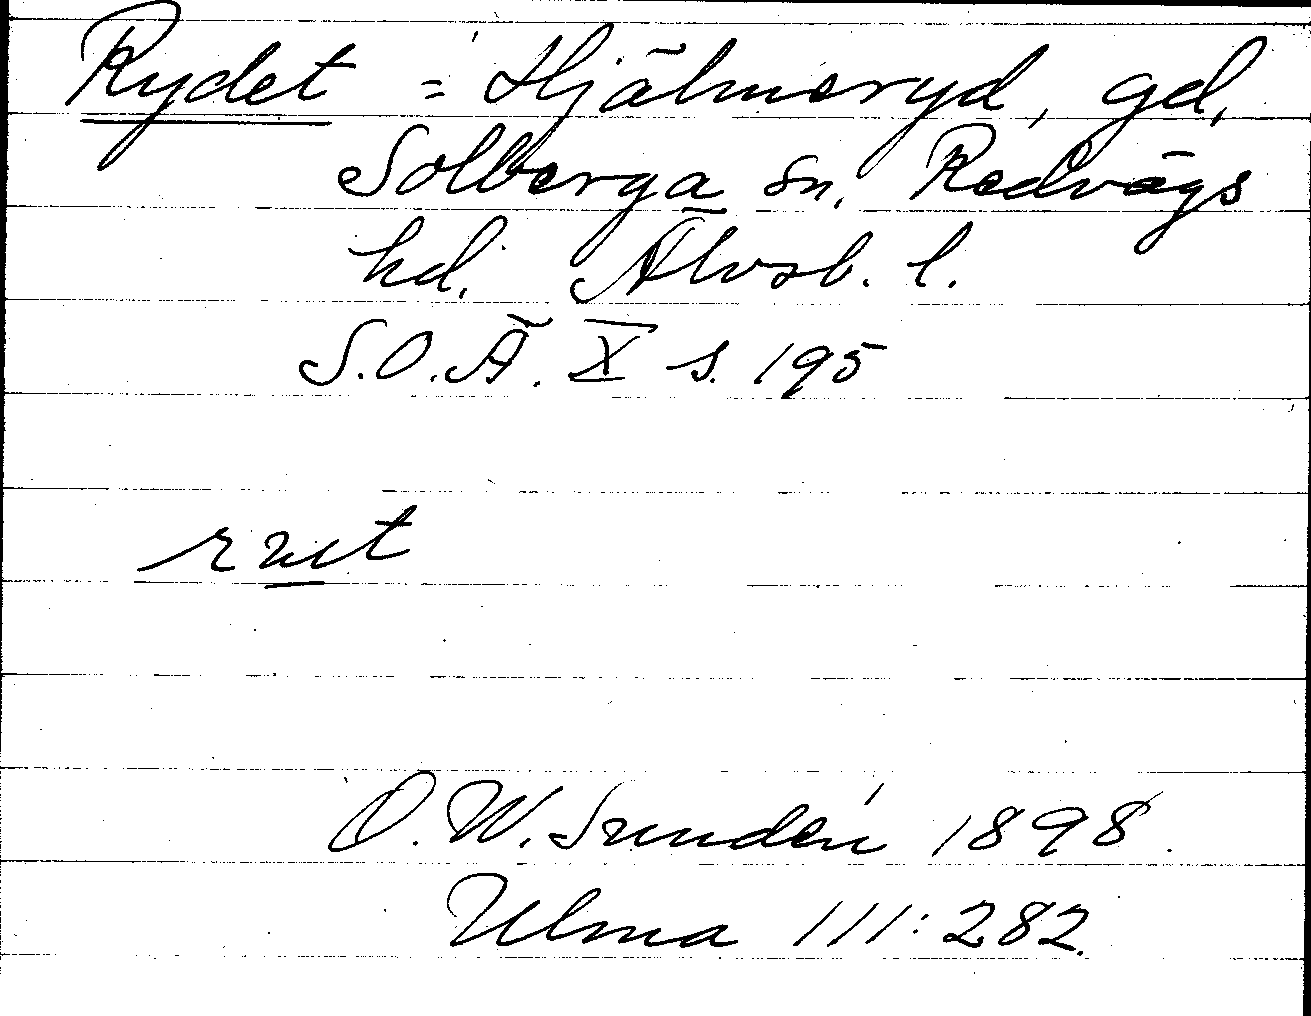 Rydet = Hjälmeryd, gd,
Solberga sn, Redvägs
hd. Älvsb. l.
S.O.Ä. X s. 195
O. W. Sundén 1898.
Ulma 111:282.